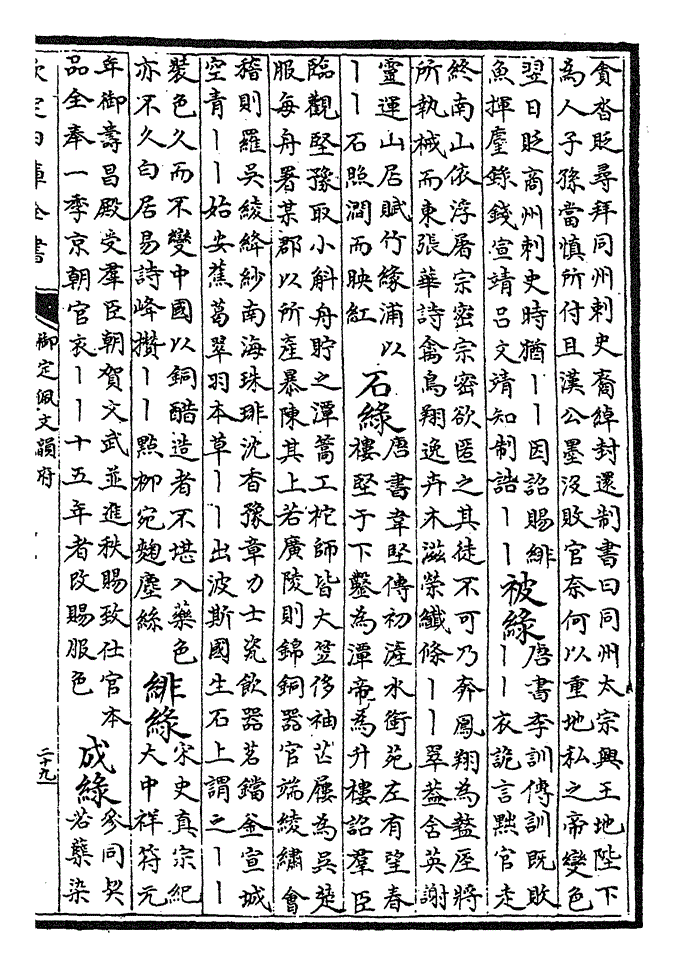 貪沓貶尋拜同州刺史裔綽封還制書曰同州太宗興王地陛下
為人子孫當慎所付且漢公墨沒敗官奈何以重地私之帝變色
翌日貶商州刺史時猶丨丨因詔賜緋
魚揮麈錄錢宣靖呂文靖知制誥丨丨
被綠
唐書李訓傳訓既敗
丨丨衣詭言黜官走
終南山依浮屠宗密宗密欲匿之其徒不可乃奔鳳翔為盩厔將
所執械而東張華詩禽鳥翔逸卉木滋榮纖條丨丨翠葢含英謝
靈運山居賦竹緣浦以
丨丨石照澗而映紅
石綠
唐書韋堅傳初滻水銜苑左有望春
樓堅于下鑿為潭帝為升樓詔羣臣
臨觀堅豫取小斛舟貯之潭篙工柁師皆大笠侈袖芒屨為吳楚
服每舟署某郡以所產暴陳其上若廣陵則錦銅器官端綾繡會
稽則羅吳綾絳紗南海珠琲沈香豫章力士瓷飲器茗鐺釜宣城
空青丨丨始安蕉葛翠羽本草丨丨出波斯國生石上謂之丨丨
裝色久而不變中國以銅醋造者不堪入藥色
亦不久白居易詩峰攢丨丨點柳宛麴塵絲
緋綠
宋史真宗紀
大中祥符元
年御壽昌殿受羣臣朝賀文武並進秩賜致仕官本
品全奉一季京朝官衣丨丨十五年者改賜服色
成綠
參同契
若蘗染
欽定四庫全書
御定佩文韻府
二十九